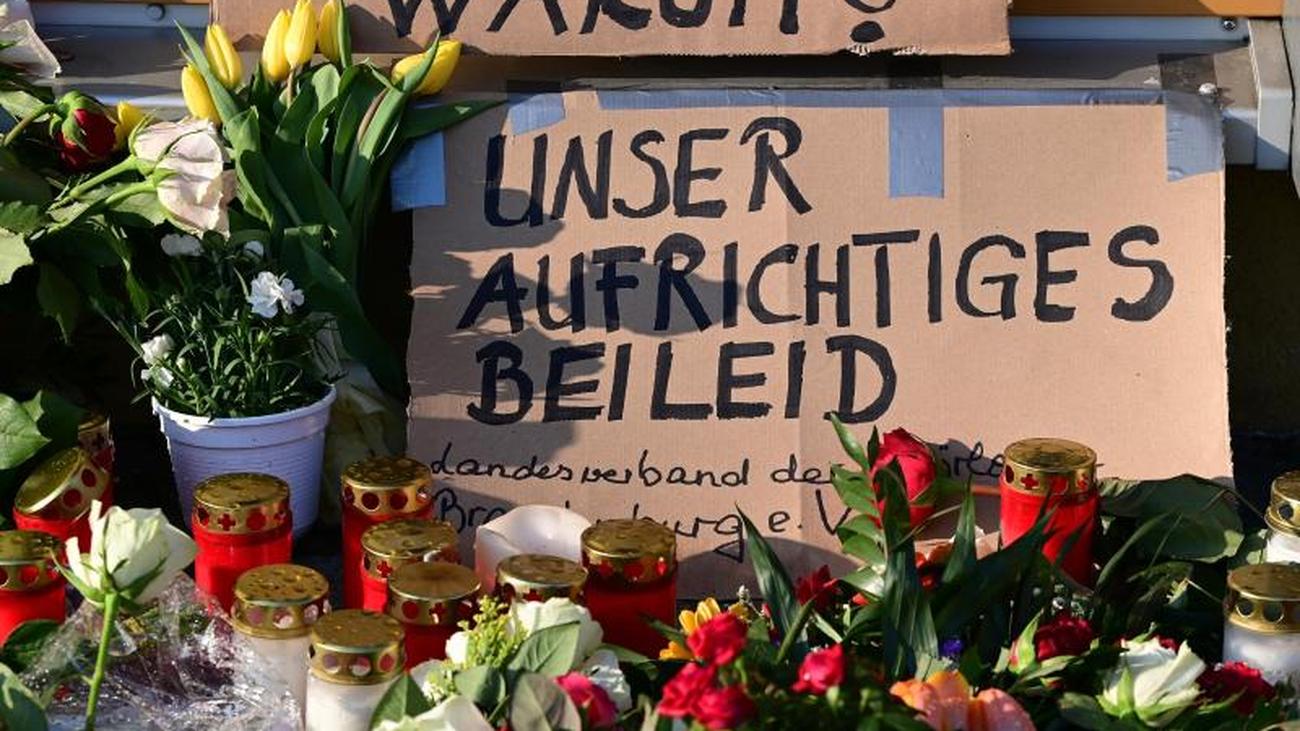 WARUM?
UNSER
AUFRICHTIGES
BEILEID
Landesverband der
Brandenburg e. V.